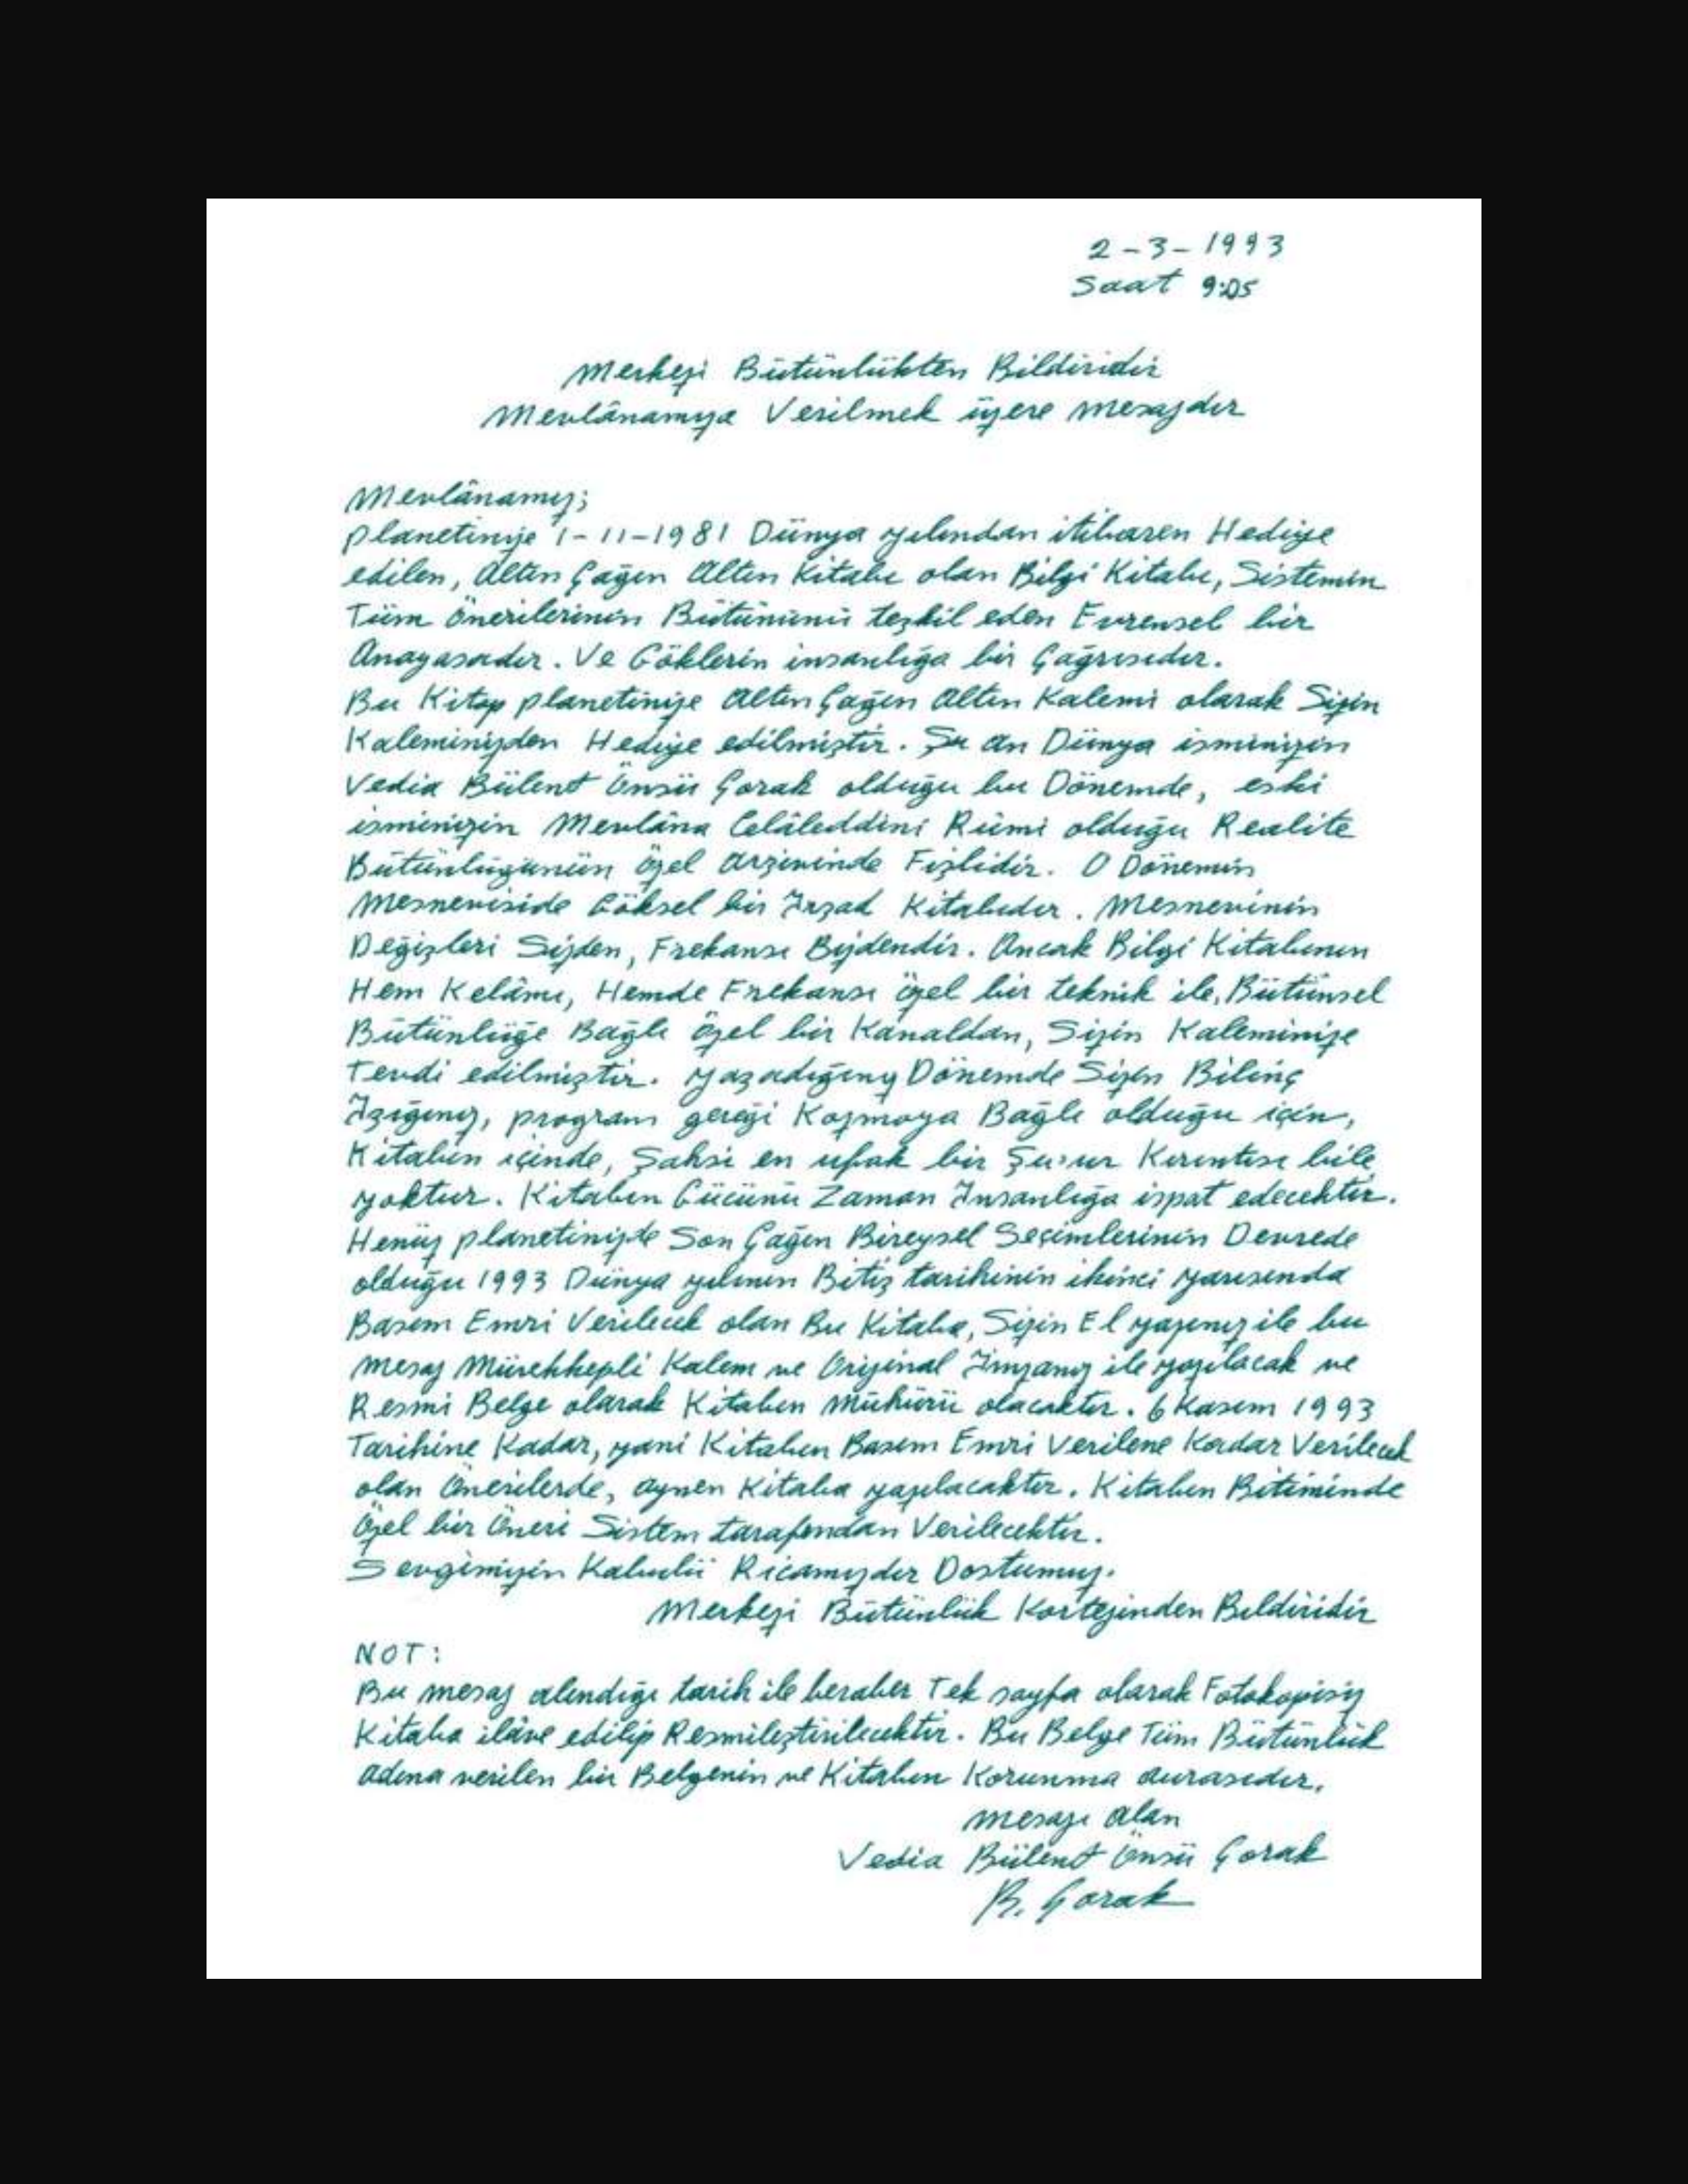 2-3-1993
Saat 9:05
Merkezi Bütünlükten Bildiridir
Mevlânamıza Verilmek üzere mesajdır
Mevlânamız;
planetinize 1-11-1981 Dünya yılından itibaren Hediye
edilen, Altın Çağın Altın Kitabı olan Bilgi Kitabı, Sistemin
Tüm önerilerinin Bütününü teşkil eden Evrensel bir
Anayasadır. Ve Göklerin insanlığa bir Çağrısıdır.
Bu Kitap planetinize Altın Çağın Altın Kalemi olarak Sizin
Kaleminizden Hediye edilmiştir. Şu an Dünya isminizin
Vedia Bülent Önsü Çorak olduğu bu Dönemde, eski
isminizin Mevlâna Celâleddini Rûmi olduğu Realite
Bütünlüğünün özel arşivinde Fişlidir. O Dönemin
Mesneviside Göksel bir İrşad Kitabıdır. Mesnevinin
Değişleri Sizden, Frekansı Bizdendir. Ancak Bilgi Kitabının
Hem Kelâmı, Hemde Frekansı özel bir teknik ile, Bütünsel
Bütünlüğe Bağlı özel bir Kanaldan, Sizin Kaleminize
Tevdi edilmiştir. yaşadığınız Dönemde Sizin Bilinç
Işığınız, program gereği Kozmoya Bağlı olduğu için,
Kitabın içinde, Şahsi en ufak bir Şuur Kırıntısı bile
yoktur. Kitabın Gücünü Zaman İnsanlığa ispat edecektir.
Henüz planetinizde Son Çağın Bireysel Seçimlerinin Devrede
olduğu 1993 Dünya yılının Bitiş tarihinin ikinci yarısında
Basım Emri Verilecek olan Bu Kitaba, Sizin El yazınız ile bu
mesaj Mürekkepli Kalem ve Orijinal İmzanız ile yazılacak ve
Resmi Belge olarak Kitabın Mühürü olacaktır. 6 Kasım 1993
Tarihine Kadar, yani Kitabın Basım Emri Verilene Kadar Verilecek
olan Önerilerde, aynen Kitaba yazılacaktır. Kitabın Bitiminde
Özel bir Öneri Sistem tarafından Verilecektir.
Sevgimizin Kabulü Ricamızdır Dostumuz.
Merkezi Bütünlük Kortejinden Bildiridir
NOT:
Bu mesaj alındığı tarih ile beraber Tek sayfa olarak Fotokopisiz
Kitaba ilâve edilip Resmileştirilecektir. Bu Belge Tüm Bütünlük
adına verilen bir Belgenin ve Kitabın Korunma aurasıdır.
mesajı alan
Vedia Bülent Önsü Çorak
B. Çorak